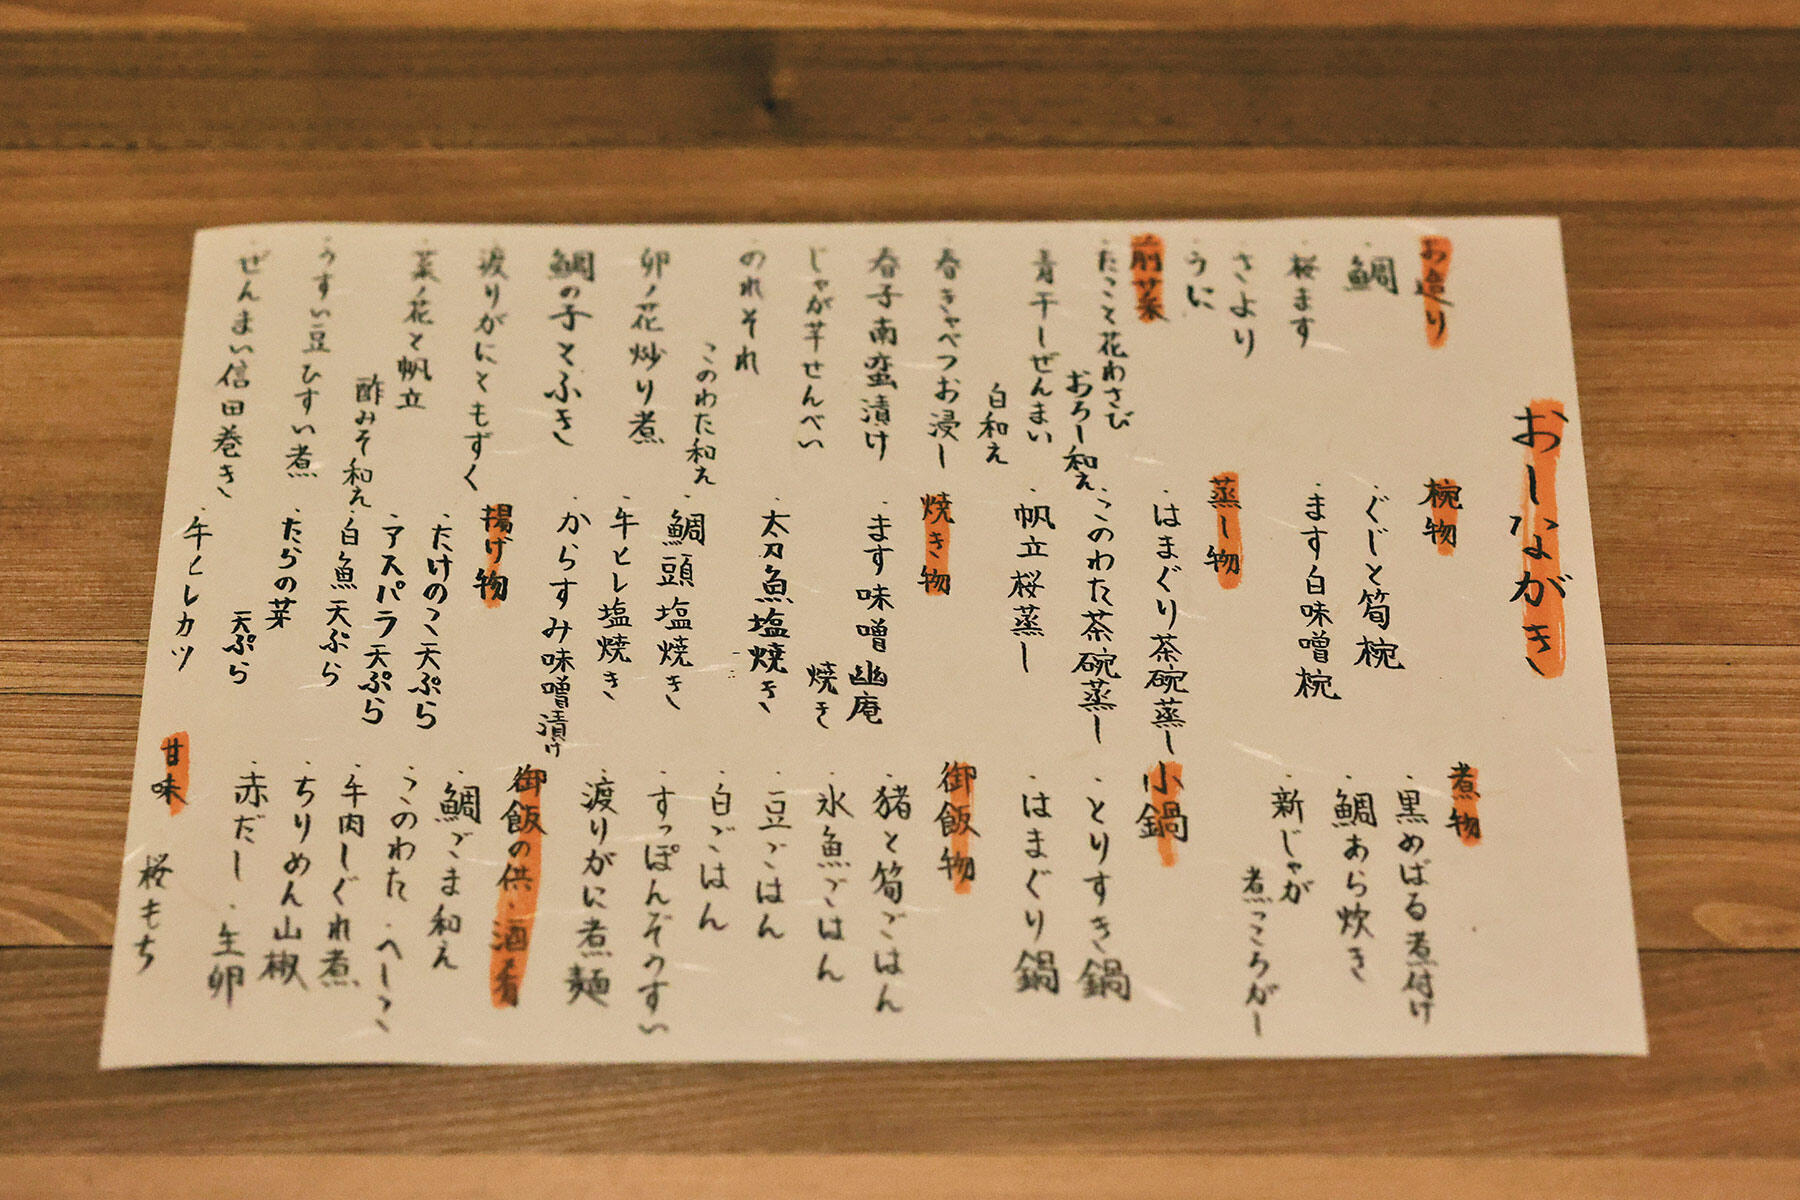 おしながき
お造り
・鯛
・桜ます
・さより
・うに
前菜
・たこと花わさび
おろし和え
・青干しぜんまい
白和え
・春きゃべつお浸し
・春子南蛮漬け
・じゃが芋せんべい
・のれそれ
このわた和え
・卯ノ花炒り煮
・鯛の子とふき
・渡りがにともずく
・菜ノ花と帆立
酢みそ和え
・うすい豆ひすい煮
・ぜんまい信田巻き
椀物
・ぐじと筍椀
・ます白味噌椀
蒸し物
・はまぐり茶碗蒸し
・このわた茶碗蒸し
・帆立桜蒸し
焼き物
・ます味噌幽庵
焼き
・太刀魚塩焼き
・鯛頭塩焼き
・牛ヒレ塩焼き
・からすみ味噌漬け
揚げ物
・たけのこ天ぷら
・アスパラ天ぷら
・白魚天ぷら
・たらの芽
天ぷら
・牛ヒレカツ
煮物
・黒めばる煮付け
・鯛あら炊き
・新じゃが
煮ころがし
小鍋
・とりすき鍋
・はまぐり鍋
御飯物
・猪と筍ごはん
・氷魚ごはん
・豆ごはん
・白ごはん
・すっぽんぞうすい
・渡りがに煮麺
御飯の供・酒肴
・鯛ごま和え
・このわた・へしこ
・牛肉しぐれ煮
・ちりめん山椒
・赤だし・生卵
甘味
桜もち